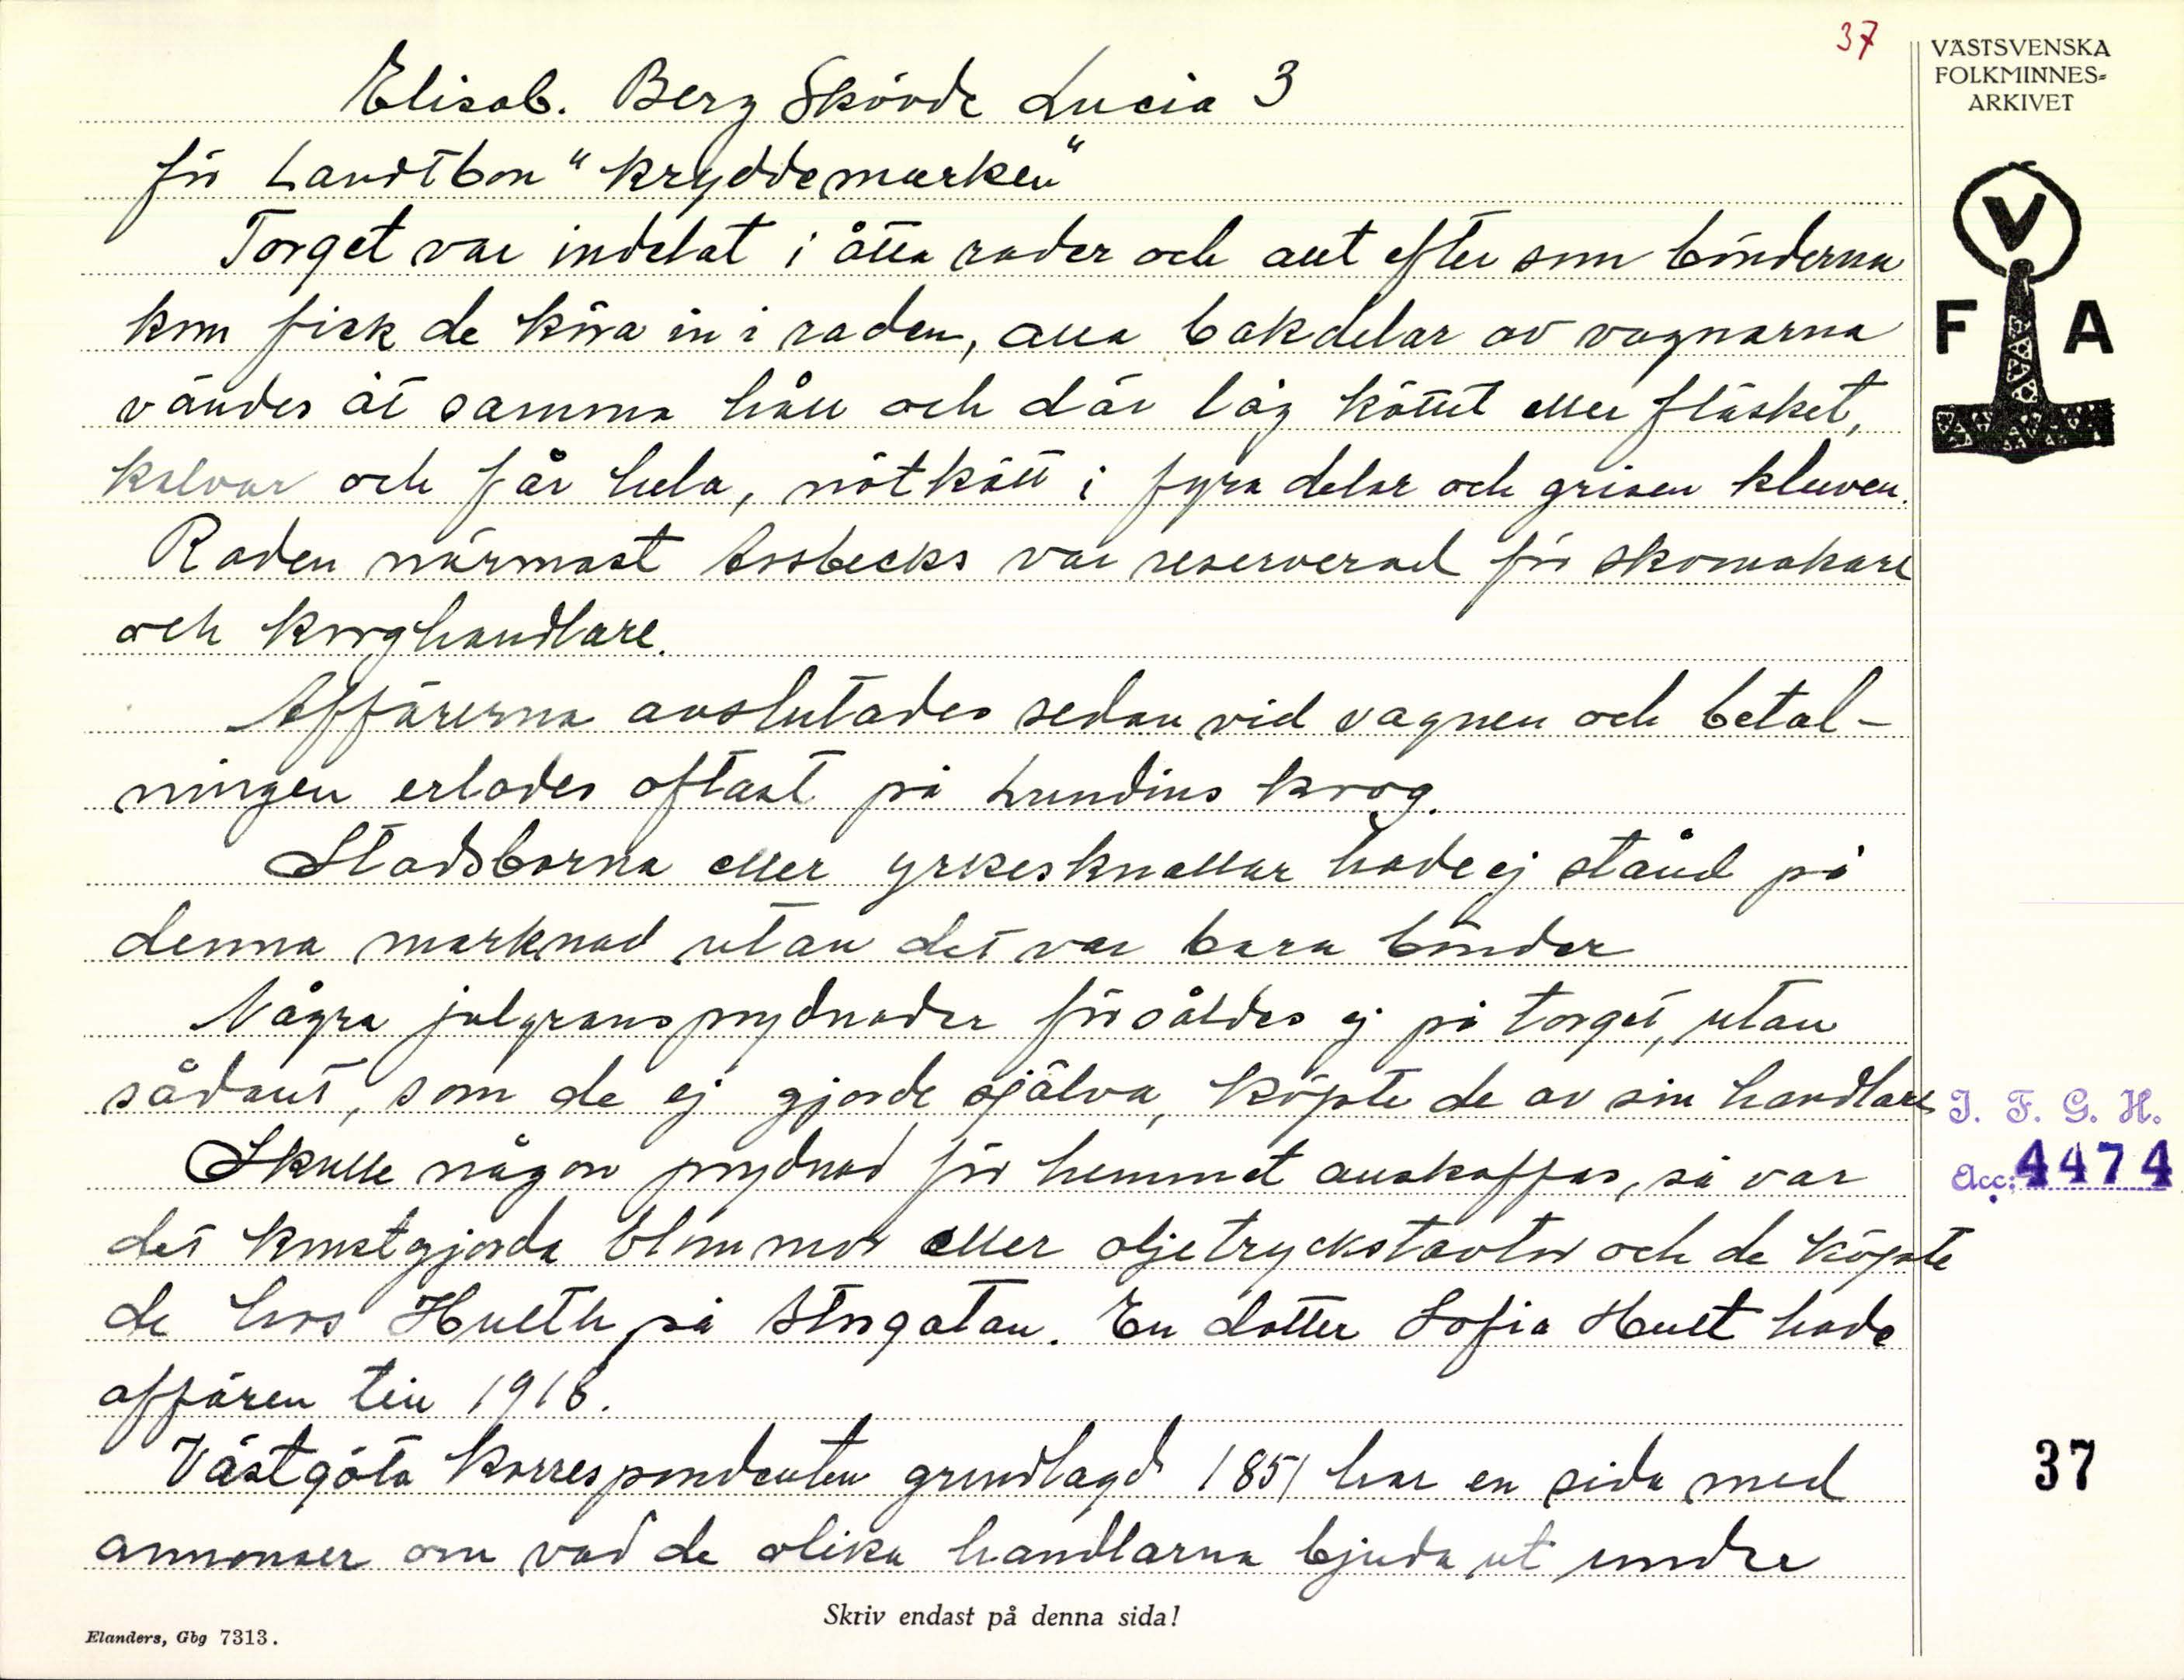 37
VÄSTSVENSKA
FOLKMINNES-
ARKIVET
Elisab. Berg Skövde Lucia 3
för Landtbon "kryddemarken"
Torget var indelat i åtta rader och allt efter som bönderna
kom fick de köra in i raden, alla bakdelar av vagnarna
vändes åt samma håll och där låg köttet eller fläsket,
kalvar och får hela, nötkött i fyra delar och grisen kluven.
Raden närmast Assbecks var reserverad för skomakare
och korghandlare.
Affärerna avslutades sedan vid vagnen och betal-
ningen erlades oftast på Lundins krog.
Stadsborna eller yrkesknallar hade ej stånd på
denna marknad utan det var bara bönder
Några julgransprydnader försåldes ej på torget, utan
sådant, som de ej gjorde själva, köpte de av sin handlare
Skulle någon prydnad för hemmet anskaffas, så var
det konstgjorda blommor eller oljetryckstavlor och de köpte
de hos Hulth på Storgatan. En dotter Sofia Hult hade
affären till 1918.
Västgöta Korrespondenten grundlagd 1851 har en sida med
annonser om vad de olika handlarna bjuda ut under
V
F A
I. F. G. H.
Acc: 4474
37
Skriv endast på denna sida!
Elanders, Gbg 7313.